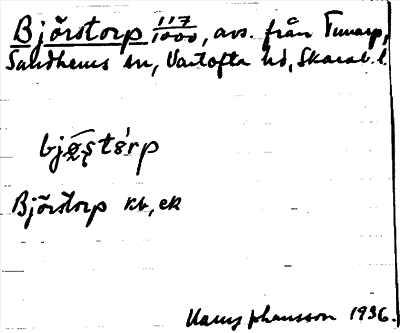 Björstorp 117/1000, avs. från Tunarp,
Sandhems sn, Vartofta hd, Skarab. l.
bjøstørp
Björstorp kb, ek
Harry Johansson 1936.